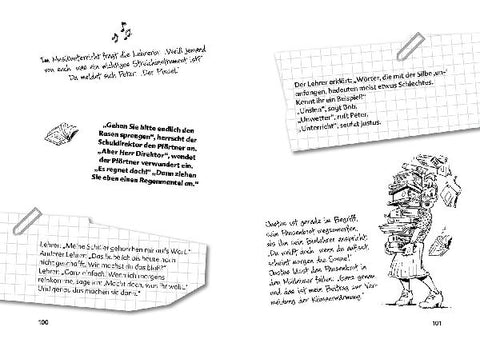 Im Musikunterricht fragt die Lehrerin: „Weiß jemand
von euch, was ein wichtiges Streichinstrument ist?“
Da meldet sich Peter: „Der Pinsel.“
„Gehen Sie bitte endlich den
Rasen sprengen“, herrscht der
Schuldirektor den Pförtner an.
„Aber Herr Direktor“, wendet
der Pförtner verwundert ein.
„Es regnet doch!“ „Dann ziehen
Sie eben einen Regenmantel an.“
Lehrer: „Meine Schüler gehorchen mir aufs Wort.“
Anderer Lehrer: „Das habe ich bis heute noch
nicht geschafft. Wie machst du das bloß?“
Lehrer: „Ganz einfach! Wenn ich morgens
reinkomme, sage ich: ‚Macht doch, was ihr wollt.‘
Und genau das machen sie dann.“
100
Der Lehrer erklärt: „Wörter, die mit der Silbe ‚un-‘
anfangen, bedeuten meist etwas Schlechtes.
Kennt ihr ein Beispiel?“
„Unsinn“, sagt Bob.
„Unwetter“, ruft Peter.
„Unterricht“, seufzt Justus.
Justus ist gerade im Begriff,
sein Pausenbrot wegzuwerfen,
als ihn sein Biolehrer anspricht:
„Du weißt auch, wenn du aufisst,
scheint morgen die Sonne!“
Justus lässt das Pausenbrot in
den Mülleimer fallen: „Ganz genau,
und das ist mein Beitrag zur Ver-
meidung der Klimaerwärmung.“
101